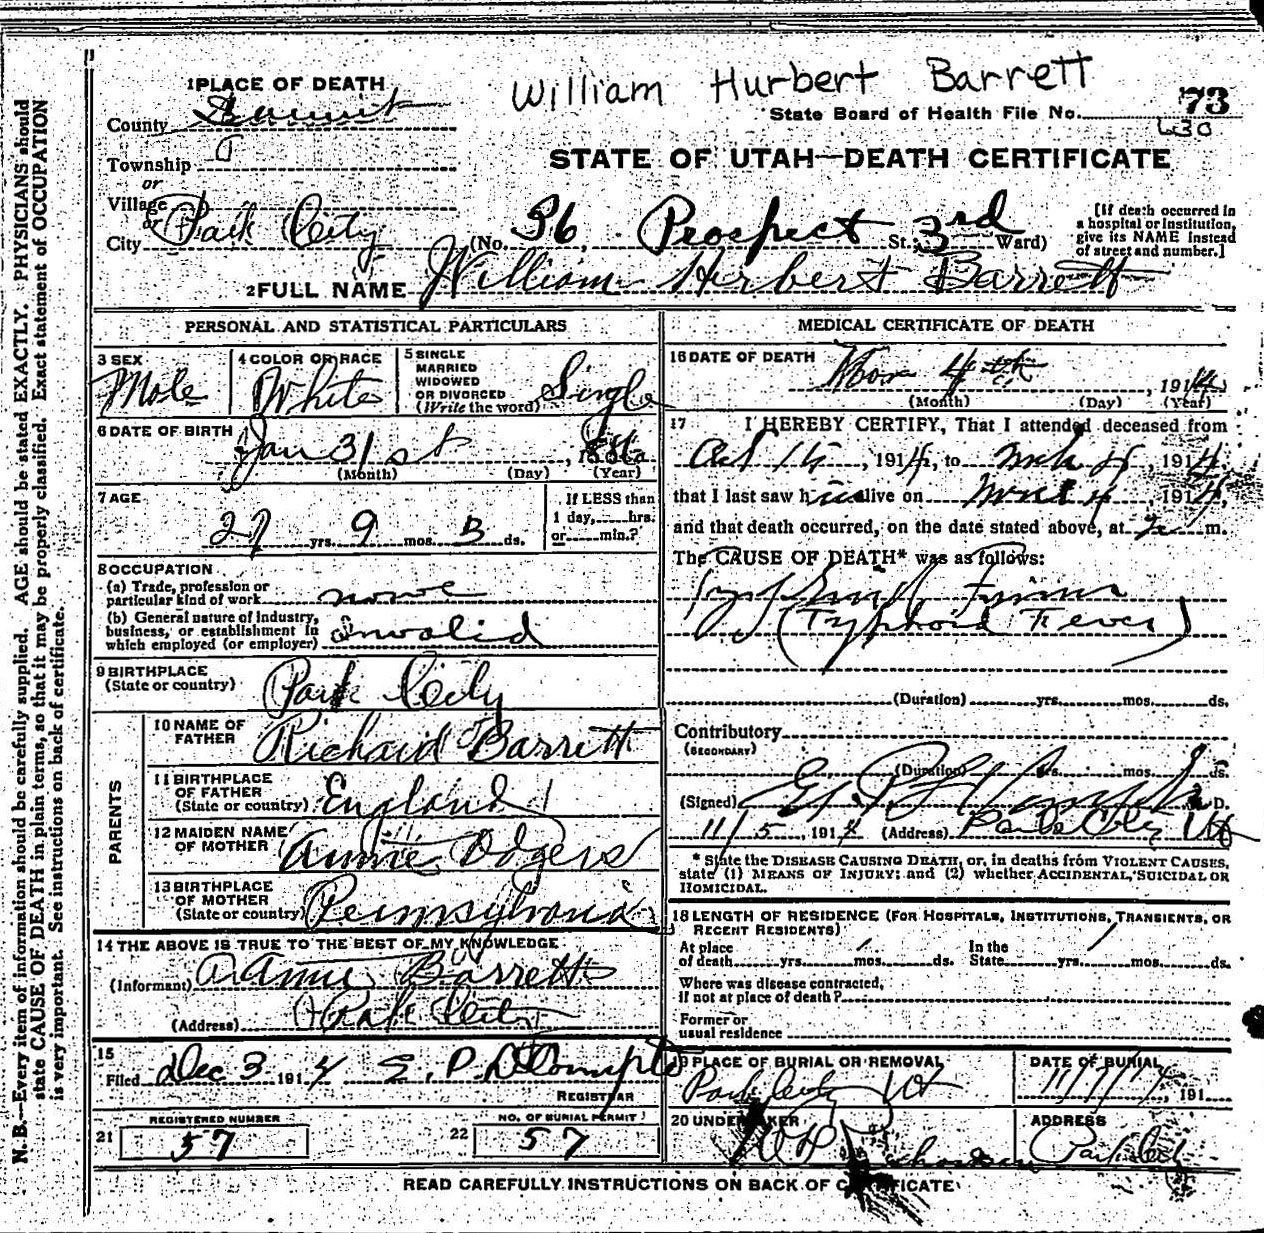 William Hurbert Barrett
1 PLACE OF DEATH
State Board of Health File No. 73
630
County Summit
Township
or
Village
or
City Park City
STATE OF UTAH—DEATH CERTIFICATE
(No. 36, Prospect St; 3rd Ward)
[If death occurred in
a hospital or institution,
give its NAME instead
of street and number.]
2 FULL NAME William Herbert Barrett
PERSONAL AND STATISTICAL PARTICULARS
3 SEX
Male
4 COLOR OR RACE
White
5 SINGLE
MARRIED
WIDOWED
OR DIVORCED
(Write the word) Single
6 DATE OF BIRTH
Jan 31st, 1886
(Month) (Day) (Year)
7 AGE
27 yrs. 9 mos. ds.
If LESS than
1 day, hrs.
or min.?
8 OCCUPATION
(a) Trade, profession or
particular kind of work none
(b) General nature of industry,
business, or establishment in
which employed (or employer) Invalid
9 BIRTHPLACE
(State or country)
Park City
PARENTS
10 NAME OF
FATHER
Richard Barrett
11 BIRTHPLACE
OF FATHER
(State or country) England
12 MAIDEN NAME
OF MOTHER
Annie Odgers
13 BIRTHPLACE
OF MOTHER
(State or country) Pennsylvania
14 THE ABOVE IS TRUE TO THE BEST OF MY KNOWLEDGE
(Informant) Annie Barrett
(Address) Park City
15
Filed Dec 3 1914 E. P.
REGISTRAR
REGISTERED NUMBER
21 57
NO. OF BURIAL PERMIT
22 57
MEDICAL CERTIFICATE OF DEATH
16 DATE OF DEATH
Nov 4th, 1914
(Month) (Day) (Year)
17 I HEREBY CERTIFY, That I attended deceased from
Oct, 1914, to Nov 4, 1914
that I last saw him alive on Nov 4, 1914,
and that death occurred, on the date stated above, at m.
The CAUSE OF DEATH* was as follows:
(Typhoid Fever)
(Duration) yrs. mos. ds.
Contributory
(SECONDARY)
(Duration) yrs. mos. ds.
(Signed) M.D.
11/5, 1914 (Address) Park City Ut
* State the DISEASE CAUSING DEATH, or, in deaths from VIOLENT CAUSES,
state (1) MEANS OF INJURY; and (2) whether ACCIDENTAL, SUICIDAL OR
HOMICIDAL.
18 LENGTH OF RESIDENCE (FOR HOSPITALS, INSTITUTIONS, TRANSIENTS, OR
RECENT RESIDENTS)
At place
of death yrs. mos. ds.
In the
State yrs. mos. ds.
Where was disease contracted,
if not at place of death?
Former or
usual residence
19 PLACE OF BURIAL OR REMOVAL
Park City Ut
DATE OF BURIAL
11/7/14, 191
20 UNDERTAKER
ADDRESS
Park City
READ CAREFULLY INSTRUCTIONS ON BACK OF CERTIFICATE
N. B.—Every item of information should be carefully supplied. AGE should be stated EXACTLY. PHYSICIANS should
state CAUSE OF DEATH in plain terms, so that it may be properly classified. Exact statement of OCCUPATION
is very important. See instructions on back of certificate.